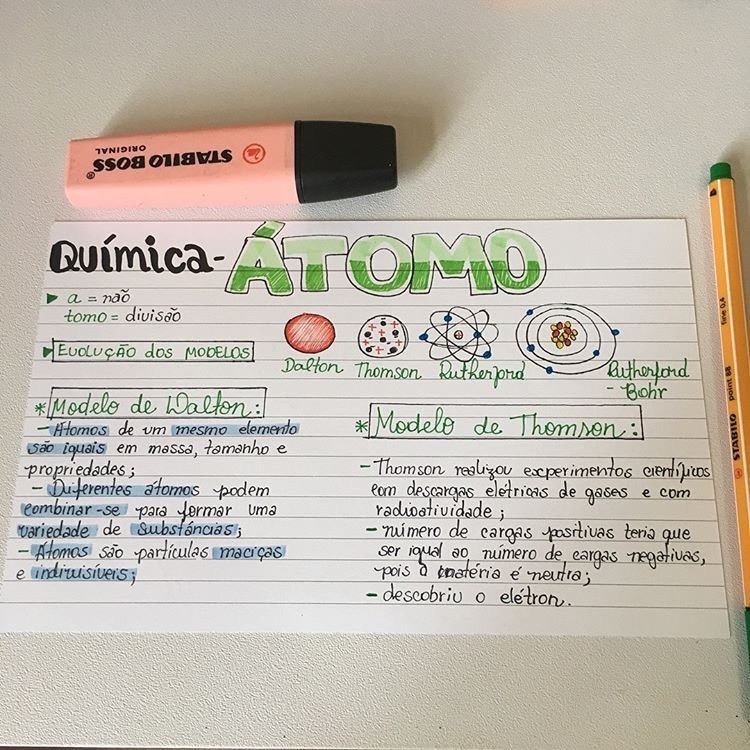 STABILO BOSS®
ORIGINAL
QUÍMICA- ÁTOMO
a = não
tomo = divisão
EVOLUÇÃO DOS MODELOS
Dalton Thomson Rutherford Rutherford
- Bohr
* Modelo de Dalton:
- Átomos de um mesmo elemento
são iguais em massa, tamanho e
propriedades;
- Diferentes átomos podem
combinar-se para formar uma
variedade de substâncias;
- Átomos são partículas maciças
e indivisíveis;
* Modelo de Thomson:
- Thomson realizou experimentos científicos
com descargas elétricas de gases e com
radioatividade;
- número de cargas positivas teria que
ser igual ao número de cargas negativas,
pois a matéria é neutra;
- descobriu o elétron.
STABILO point 88 fine 0,4